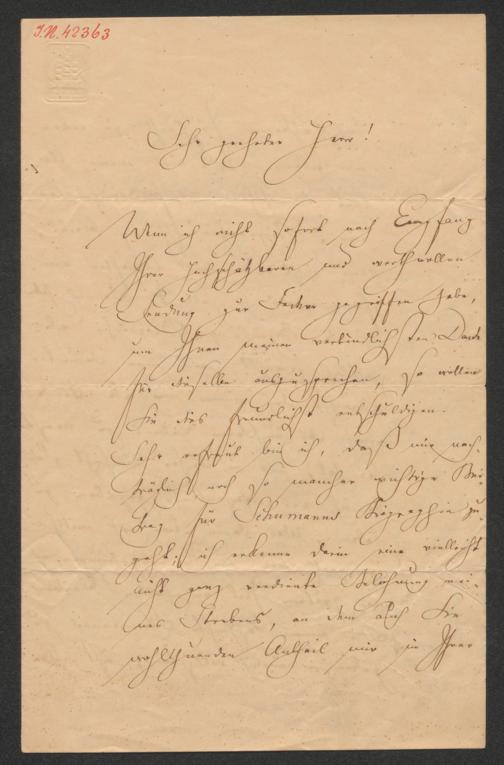 I.N. 42363
Sehr geehrter Herr!
Wenn ich nicht sofort nach Empfang
Ihrer hochschätzbaren und werthvollen
Sendung zur Feder gegriffen habe,
um Ihnen meinen verbindlichsten Dank
für dieselbe auszusprechen, so wollen
Sie dies freundlichst entschuldigen.
Sehr erfreut bin ich, daß mir nach-
träglich noch so mancher wichtige Bei-
trag für Schumanns Biographie zu-
geht; ich erkenne darin eine vielleicht
nicht ganz verdiente Belohnung mei-
nes Strebens, an dem auch Sie
wohlthuenden Antheil mir in Ihrer